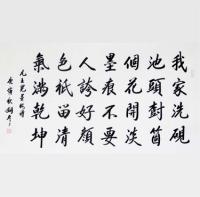 我家洗硯
池頭樹箇
個花開淡
墨痕不要
人誇好顏
色祗留清
氣滿乾坤
元王冕墨梅詩